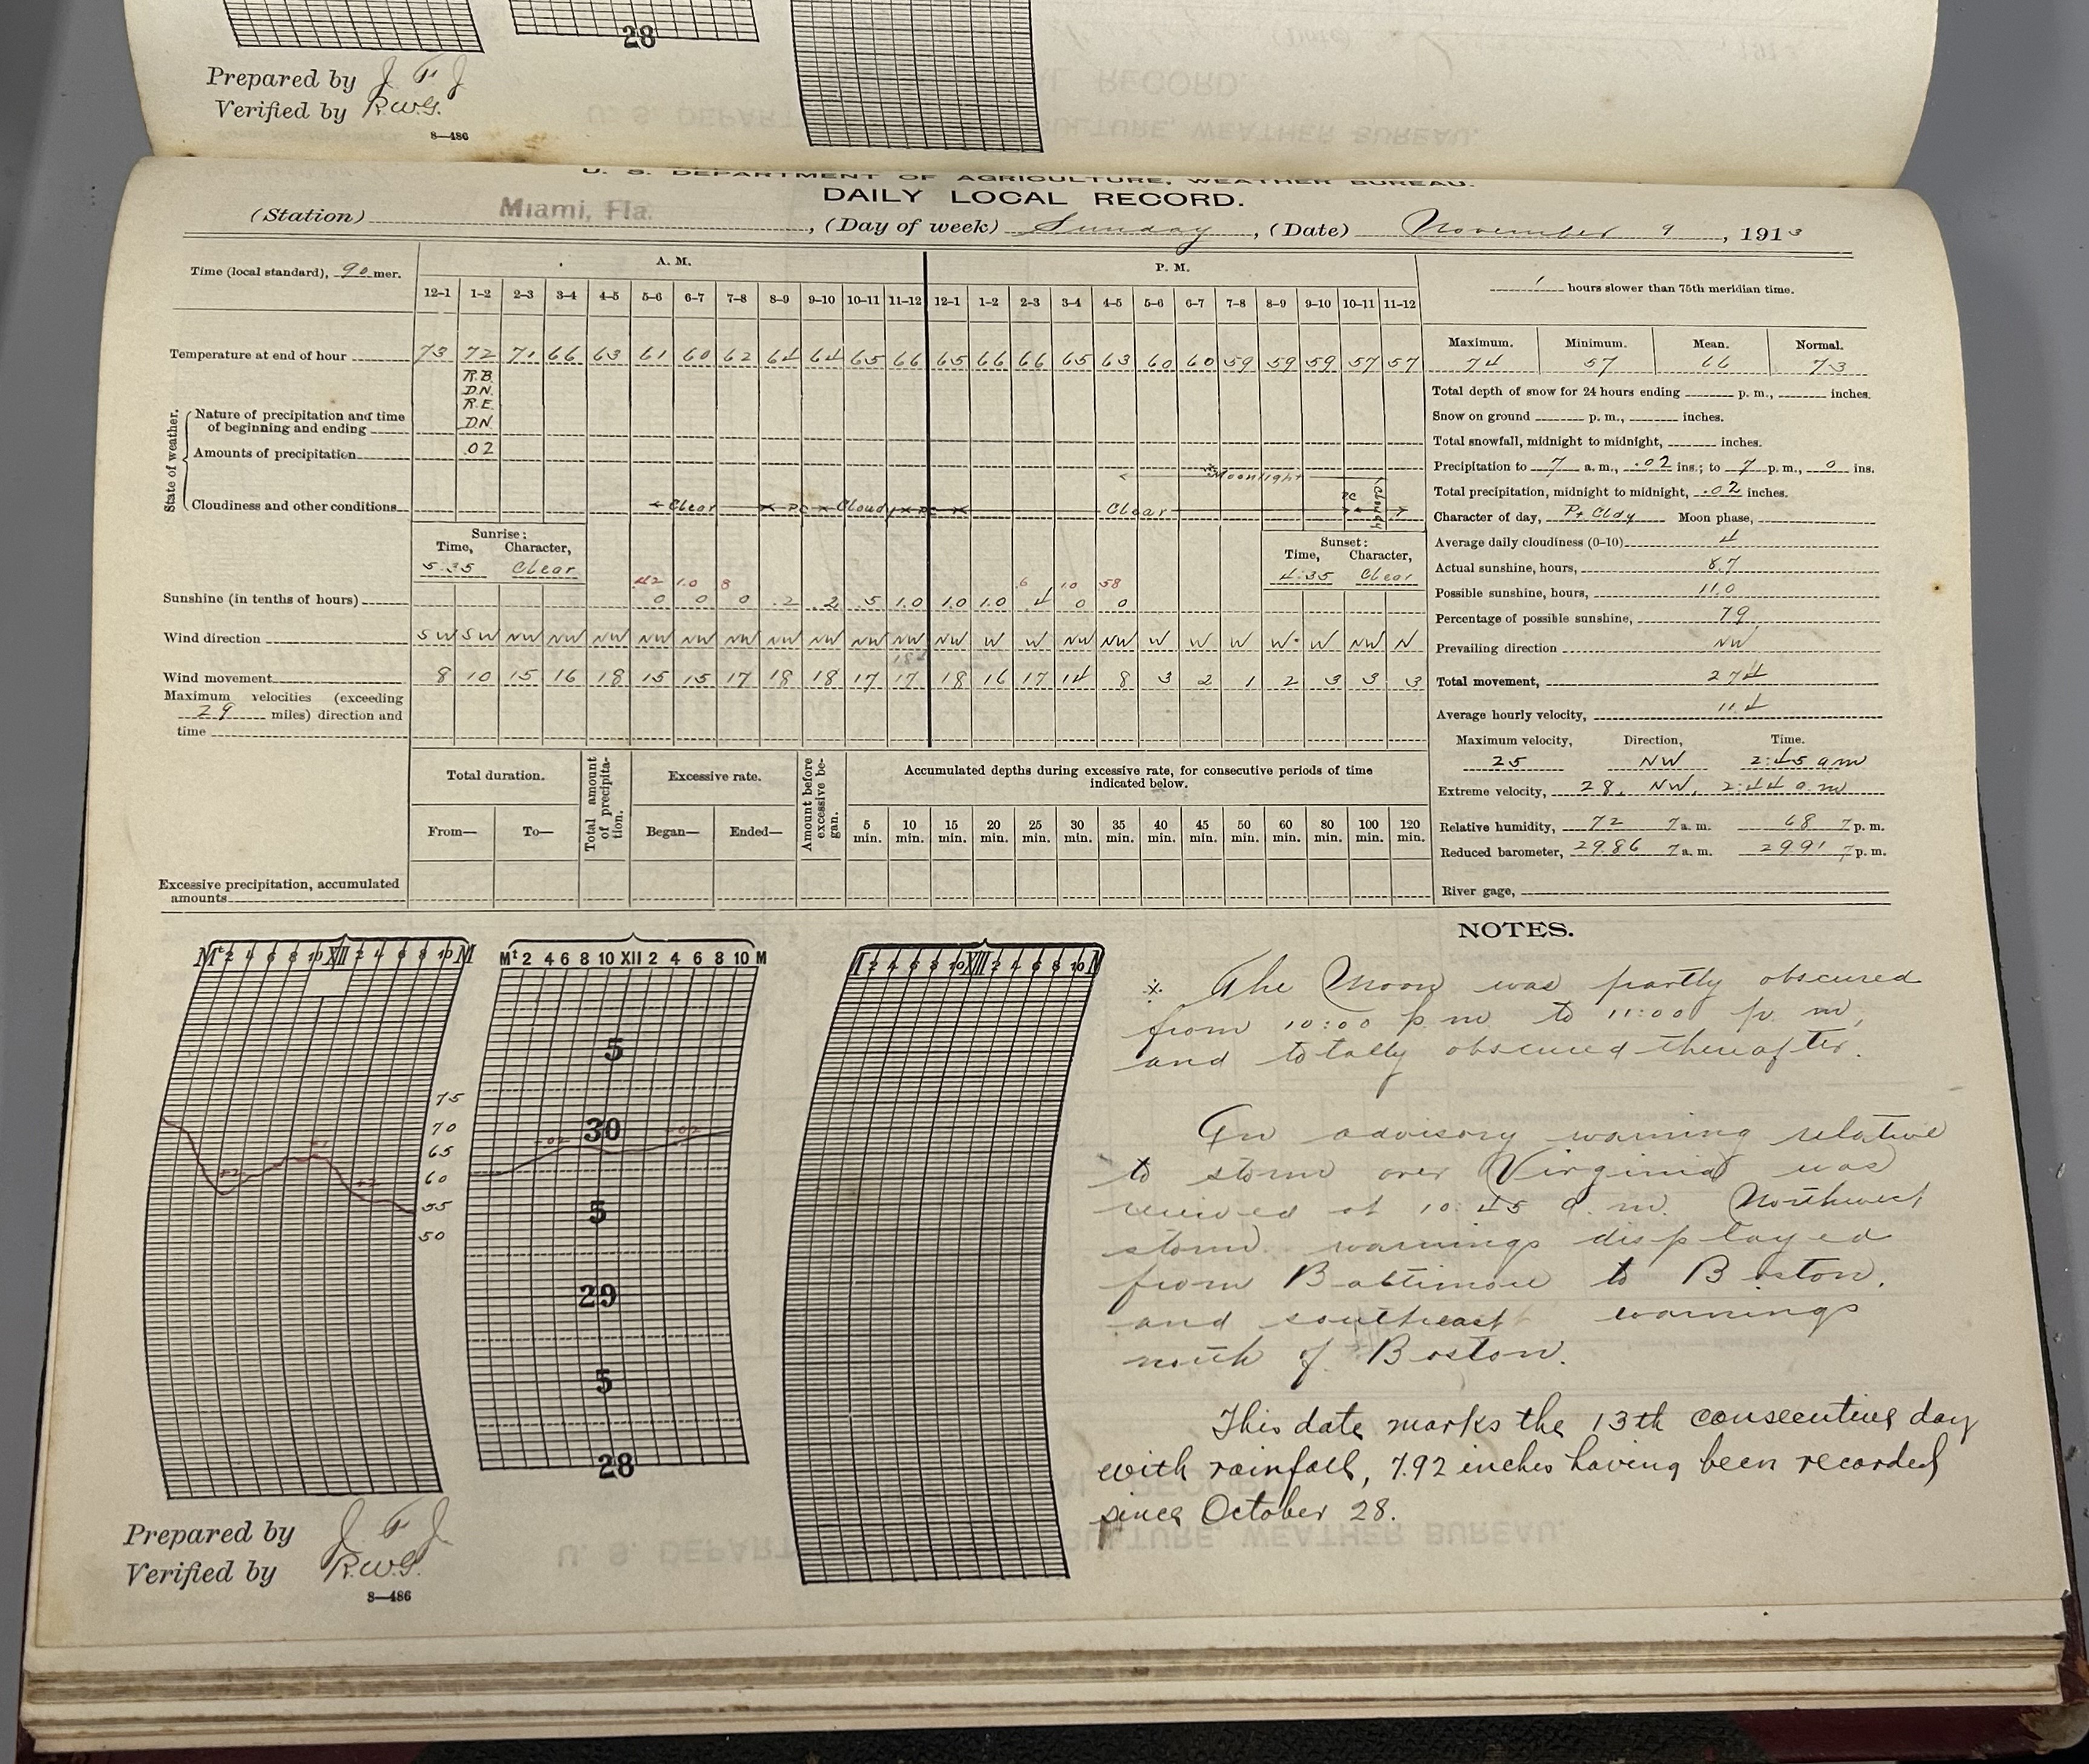 28
Prepared by J F J
Verified by R.W.G.
8—486
U. S. DEPARTMENT OF AGRICULTURE, WEATHER BUREAU.
DAILY LOCAL RECORD.
(Station) Miami, Fla. , (Day of week) Sunday , (Date) November 9 , 1913
Time (local standard), 90 mer.
A. M.
P. M.
1 hours slower than 75th meridian time.
12–1 1–2 2–3 3–4 4–5 5–6 6–7 7–8 8–9 9–10 10–11 11–12 12–1 1–2 2–3 3–4 4–5 5–6 6–7 7–8 8–9 9–10 10–11 11–12
Temperature at end of hour 73 72 71 66 63 61 60 62 64 64 65 66 65 66 66 65 63 60 60 59 59 59 57 57
Maximum. Minimum. Mean. Normal.
74 57 66 73
State of weather.
Nature of precipitation and time of beginning and ending
R.B.
D.N.
R.E.
DN.
Amounts of precipitation .02
Moonlight
Cloudiness and other conditions Clear PC Cloudy PC Clear PC Cloudy
Total depth of snow for 24 hours ending p. m., inches.
Snow on ground p. m., inches.
Total snowfall, midnight to midnight, inches.
Precipitation to 7 a. m., .02 ins.; to 7 p. m., 0 ins.
Total precipitation, midnight to midnight, .02 inches.
Character of day, Pt Cldy Moon phase,
Average daily cloudiness (0–10) 4
Actual sunshine, hours, 8.7
Possible sunshine, hours, 11.0
Percentage of possible sunshine, 79
Prevailing direction NW
Total movement, 274
Average hourly velocity, 11.4
Maximum velocity, Direction, Time.
25 NW 2:45 am
Extreme velocity, 28, NW, 2:44 a m
Relative humidity, 72 7 a. m. 68 7 p. m.
Reduced barometer, 29.86 7 a. m. 29.91 7 p. m.
River gage,
Sunrise:
Time, Character,
5.35 Clear
Sunset:
Time, Character,
4:35 Clear
42 1.0 8 6 10 58
Sunshine (in tenths of hours) 0 0 0 .2 .2 .5 1.0 1.0 1.0 .4 0 0
Wind direction SW SW NW NW NW NW NW NW NW NW NW NW NW W W NW NW W W W W W NW N
Wind movement 8 10 15 16 18 15 15 17 18 18 17 17 18 16 17 14 8 3 2 1 2 3 3 3
Maximum velocities (exceeding
29 miles) direction and
time
Total duration.
From— To—
Total amount of precipitation.
Excessive rate.
Began— Ended—
Amount before excessive began.
Accumulated depths during excessive rate, for consecutive periods of time
indicated below.
5 min. 10 min. 15 min. 20 min. 25 min. 30 min. 35 min. 40 min. 45 min. 50 min. 60 min. 80 min. 100 min. 120 min.
Excessive precipitation, accumulated
amounts
Mt 2 4 6 8 10 XII 2 4 6 8 10 M
75
70
65
60
55
50
Mt 2 4 6 8 10 XII 2 4 6 8 10 M
5
30
5
29
5
28
2 4 6 8 10 XII 2 4 6 8 10 M
NOTES.
※ The Moon was partly obscured
from 10:00 p. m. to 11:00 p. m,
and totally obscured thereafter.
An advisory warning relative
to storm over Virginia was
received at 10:45 a. m. Northwest
storm warnings displayed
from Baltimore to Boston,
and southeast warnings
north of Boston.
This date marks the 13th consecutive day
with rainfall, 7.92 inches having been recorded
since October 28.
Prepared by J F J
Verified by R.W.G.
8—486